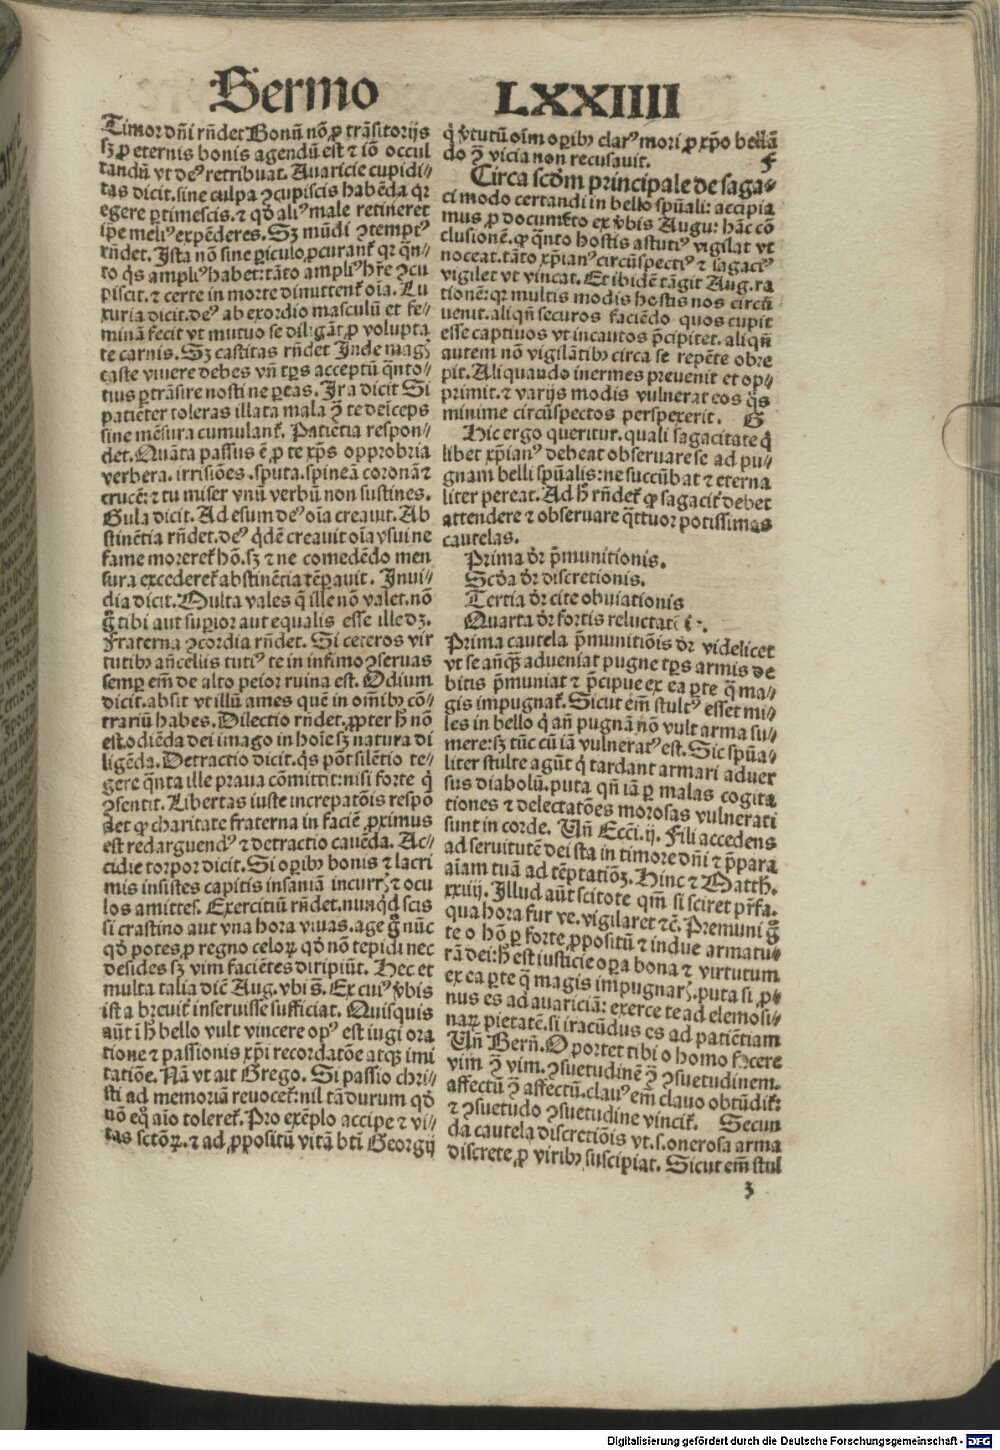 Sermo LXXIIII
Timor dn̄i rn̄det Bonū nō ꝓ trāsitorijs
sꝫ ꝓ eternis bonis agendū est ⁊ iō occul
tandū vt deꝰ retribuat. Auaricie cupidi⸗
tas dicit. sine culpa ꝯcupiscis habēda qr
egere ꝑtimescis. ⁊ qd̄ aliꝰ male retineret
ip̄e meliꝰ expēderes. Sꝫ mūdi ꝯtemptꝰ
rn̄det. Ista nō sine ꝑiculo ꝓcurant᷑ qr qn̄⸗
to q̇s ampliꝰ habet: tāto ampliꝰ hr̄e ꝯcu
piscit. ⁊ certe in morte dimittent᷑ oīa. Lu
xuria dicit. deꝰ ab exordio masculū et fe⸗
minā fecit vt mutuo se diligāt ꝓ volupta
te carnis. Sꝫ castitas rn̄det Inde magꝭ
caste viuere debes vn̄ tp̄s acceptū qn̄to⸗
tius ꝑtrāsire nosti ne ꝑeas. Ira dicit Si
patiēter toleras illata mala ꝙ̄ te deīceps
sine mēsura cumulant᷑. Patiētia respon⸗
det. Quāta passus ē ꝓ te xp̄s opprobria
verbera. irrisiōes. sputa. spineā coronā ⁊
crucē: ⁊ tu miser vnū verbū non sustines.
Gula dicit. Ad esum deꝰ oīa creauit. Ab
stinētia rn̄det. deꝰ qdē creauit oīa vsui ne
fame moreret᷑ hō. sꝫ ⁊ ne comedēdo men
sura excederet᷑ abstinētia tēꝑauit. Inui⸗
dia dicit. Multa vales q̄ ille nō valet. nō
g̊ tibi aut suꝑior aut equalis esse ille dꝫ.
Fraterna ꝯcordia rn̄det. Si ceteros vir
tutibꝰ an̄cellis tutiꝰ te in infimo ꝯseruas
semꝑ em̄ de alto peior ruina est. Odium
dicit. absit vt illū ames quē in om̄ibꝰ cō⸗
trariū habes. Dilectio rn̄det. ꝓpter h̄ nō
est odiēda dei imago in hoīe sꝫ natura di
ligēda. Detractio dicit. q̇s pōt silētio te⸗
gere qn̄ta ille praua cōmittit: nisi forte q̇
ꝯsentit. Libertas iuste increpatōis respō
det ꝙ charitate fraterna in faciē ꝓximus
est redarguendꝰ ⁊ detractio cauēda. Ac⸗
cidie torpor dicit. Si oꝑibꝰ bonis ⁊ lacri
mis insistes capitis insaniā incurrꝭ ⁊ ocu
los amittes. Exercitiū rn̄det. nunqd scis
si crastino aut vna hora viuas. age g̊ nūc
qd̄ potes. ꝓ regno celoꝝ qd̄ nō tepidi nec
desides sꝫ vim faciētes diripiūt. Hec et
multa talia dic̄ Aug. vbi s̄. Ex cuiꝰ v̄bis
ista breuit᷑ inseruisse sufficiat. Quisquis
aūt ī h̄ bello vult vincere opꝰ est iugi ora
tione ⁊ passionis xp̄i recordatōe atqꝫ imi
tatiōe. Nā vt ait Grego. Si passio chri⸗
sti ad memoriā reuocet᷑: nil tā durum qd̄
nō eq̊ aīo toleret᷑. Pro exēplo accipe ⁊ vi⸗
tas sctōꝝ. ⁊ ad ꝓpositū vitā bt̄i Georgij
q̇ v̄tutū oīm oꝑibꝰ clarꝰ mori ꝓ xp̄o bellā
do ꝙ̄ vicia non recusauit. F
Circa scd̄m principale de saga⸗
ci modo certandi in bello spūali: accipia
mus ꝓ documēto ex v̄bis Augu: hāc cō
clusionē. ꝙ qn̄to hostis astutiꝰ vigilat vt
noceat. tāto xp̄ianꝰ circūspectiꝰ ⁊ sagaciꝰ
vigilet vt vincat. Et ibidē tāgit Aug. ra
tionē: qr multis modis hostis nos circū
uenit. aliqn̄ securos faciēdo quos cupit
esse captiuos vt incautos p̄cipitet. aliqn̄
autem nō vigilātibꝰ circa se repēte obre
pit. Aliquando inermes preuenit et op⸗
primit. ⁊ varijs modis vulnerat eos q̊s
minime circūspectos perspexerit. G
Hic ergo queritur. quali sagacitate q̇
libet xp̄ianꝰ debeat obseruare se ad pu⸗
gnam belli spūalis: ne succūbat ⁊ eterna
liter pereat. Ad h̄ rn̄det᷑ ꝙ sagacit᷑ debet
attendere ⁊ obseruare q̄ttuor potissimas
cautelas.
Prima dr̄ p̄munitionis.
Scd̄a dr̄ discretionis.
Tertia dr̄ cite obuiationis
Quarta dr̄ fortis reluctatiōis.
Prima cautela p̄munitiōis dr̄ videlicet
vt se anq̄ꝫ adueniat pugne tp̄s armis de
bitis p̄muniat ⁊ p̄cipue ex ea ꝑte q̄ ma⸗
gis impugnat᷑. Sicut em̄ stultꝰ esset mi⸗
les in bello q̇ an̄ pugnā nō vult arma su⸗
mere: sꝫ tūc cū iā vulneratꝰ est. Sic spūa⸗
liter stulte agūt q̇ tardant armari aduer
sus diabolū. puta qn̄ iā ꝑ malas cogita
tiones ⁊ delectatōes morosas vulnerati
sunt in corde. Vn̄ Ecc̄i. ij. Fili accedens
ad seruitutē dei sta in timore dn̄i ⁊ p̄para
aīam tuā ad tēptatiōꝫ. Hinc ⁊ Matth.
xxiiij. Illud aūt scitote qm̄ si sciret pr̄fa.
qua hora fur ve. vigilaret ⁊c̄. Premuni g̊
te o hō ꝑ forte ꝓpositū ⁊ indue armatu⸗
rā dei: h̄ est iusticie oꝑa bona ⁊ virtutum
ex ea ꝑte q̄ magis impugnarꝭ. puta si ꝓ⸗
nus es ad auariciā: exerce te ad elemosi⸗
naꝝ pietatē. si iracūdus es ad patiētiam
Vn̄ Bern̄. Oportet tibi o homo facere
vim ꝙ̄ vim. ꝯsuetudinē ꝙ̄ ꝯsuetudinem.
affectū ꝙ̄ affectū. clauꝰ em̄ clauo obtūdit᷑:
⁊ ꝯsuetudo ꝯsuetudine vincit᷑. Secun
da cautela discretiōis vt. s. onerosa arma
discrete ꝓ viribꝰ suscipiat. Sicut em̄ stul
z
Digitalisierung gefördert durch die Deutsche Forschungsgemeinschaft - DFG